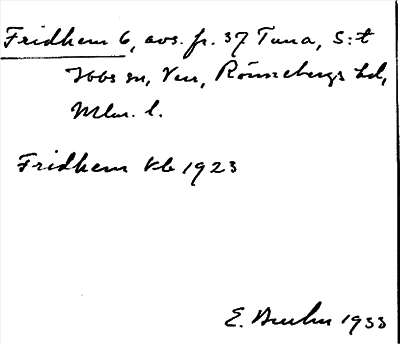 Fridhem 6, avs. fr. 37 Tuna, S:t
Ibbs sn, Ven, Rönnebergs hd,
Mlm. l.
Fridhem kb 1923
E. 1933